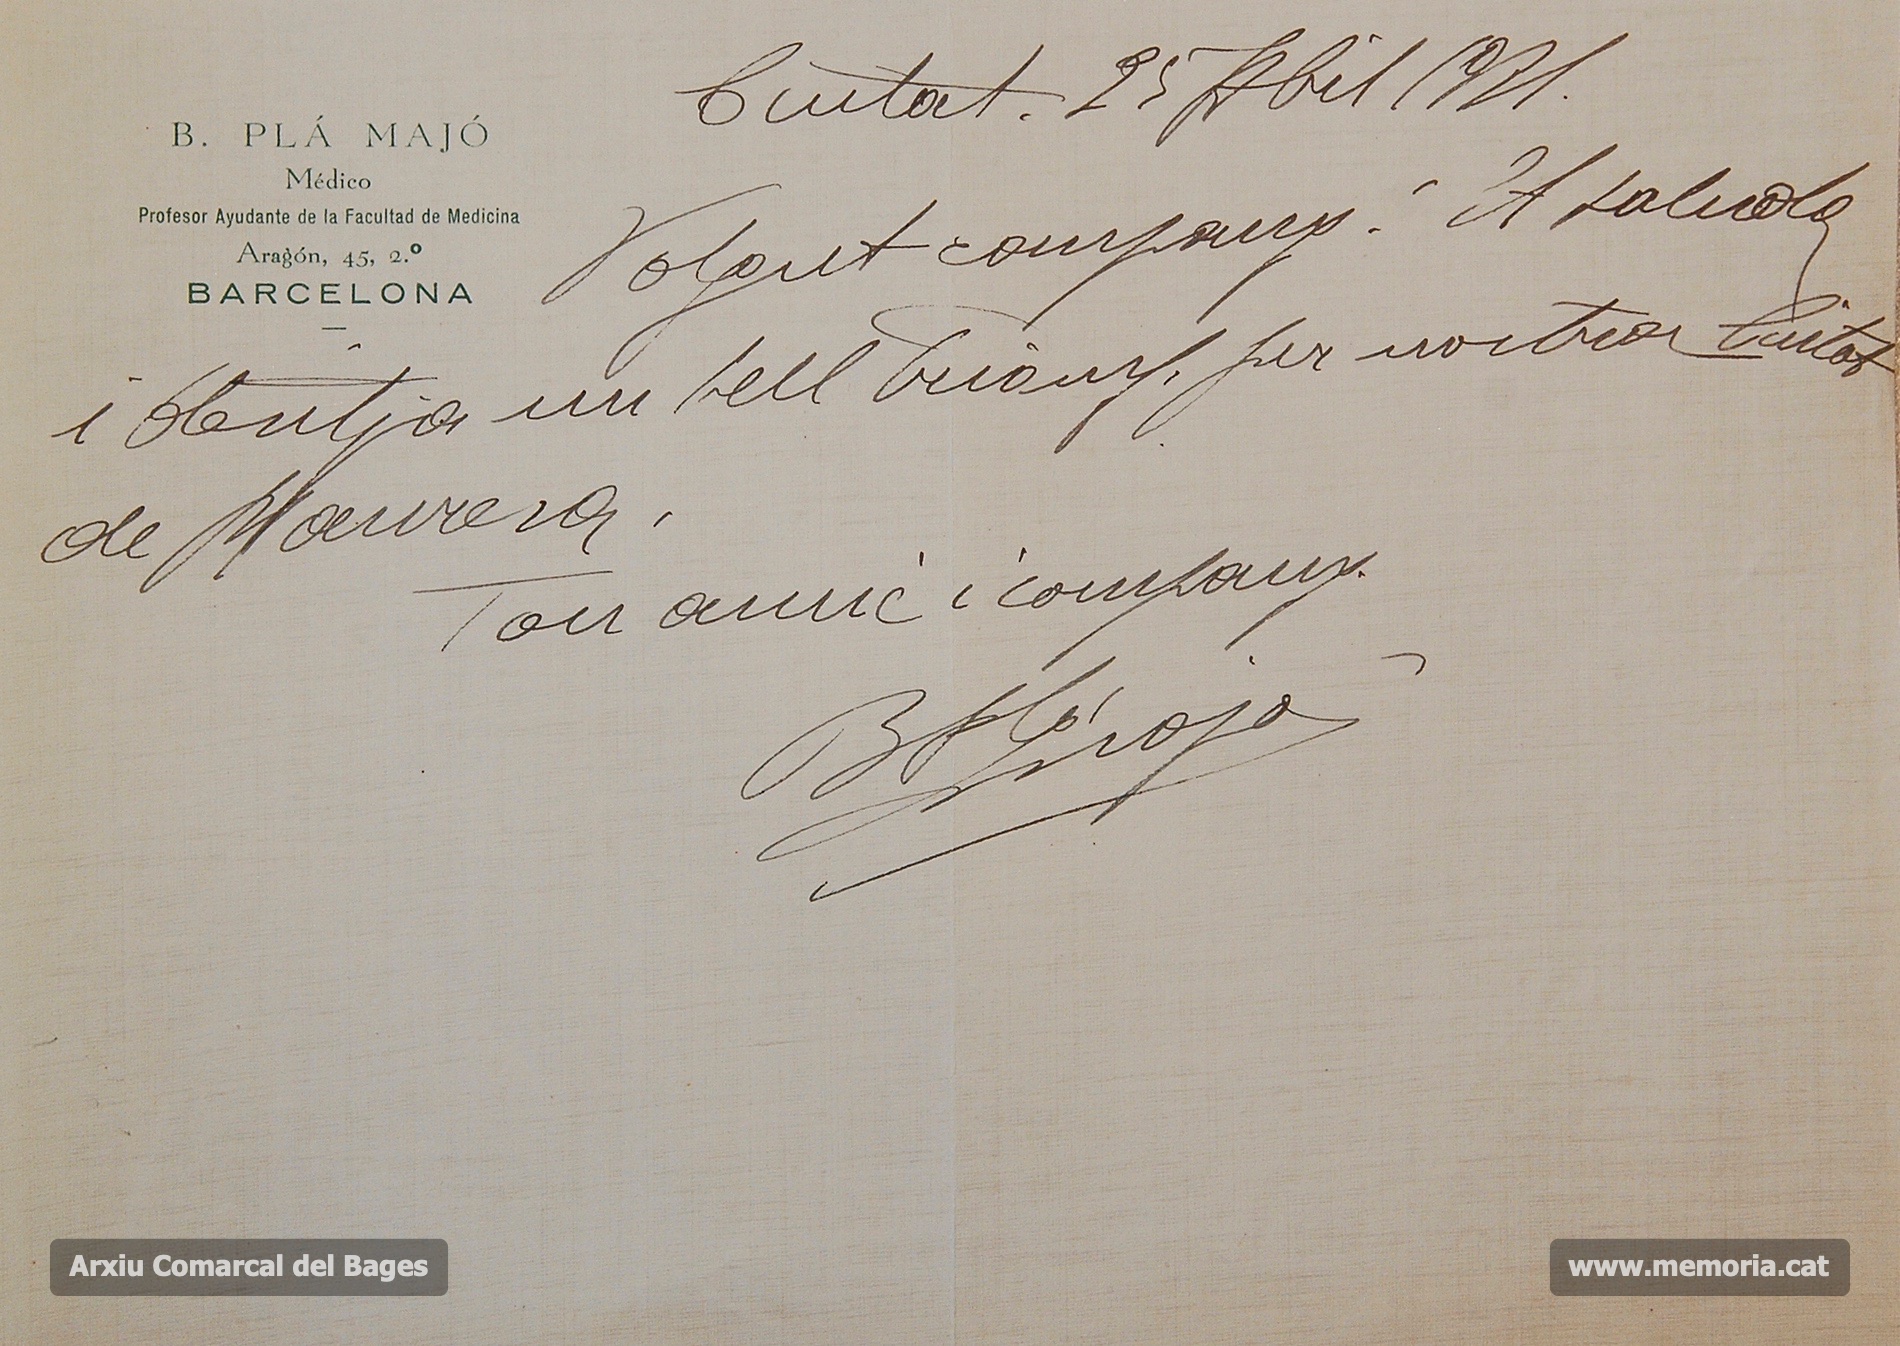 B. PLÁ MAJÓ
Médico
Profesor Ayudante de la Facultad de Medicina
Aragón, 45, 2.º
BARCELONA
Ciutat. 25 Abil 1931.
Volgut company: Et saluda
i dentja un bell triomf. per nostra Ciutat
de Manresa.
Ton amic i company.
B Plá
Arxiu Comarcal del Bages
www.memoria.cat